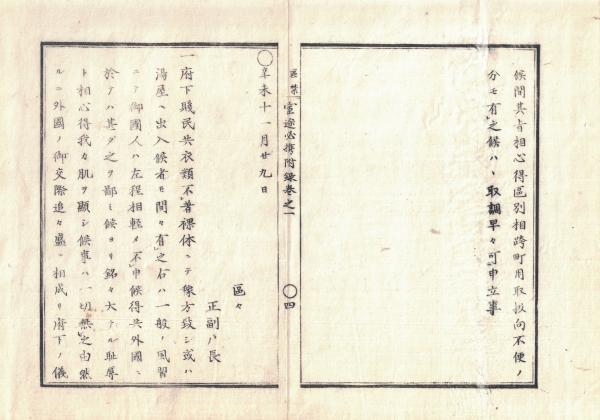 候間其旨相心得區別相跨町用取扱向不便ノ
分モ有之候ハヽ取調早々可申立事
官途必携附録巻之一
〇四
〇辛未十一月廿九日
區々
正副戸長
一府下賤民共衣類不着裸体ニテ稼方致シ或ハ
湯屋ヘ出入候者モ間々有之右ハ一般ノ風習
ニテ御國人ハ左程相軽メ不申候得共外國ニ
於テハ甚タ之ヲ鄙ミ候ヨリ銘々大ナル耻辱
ト相心得我カ肌ヲ顯シ候事ハ一切無之由然
ルニ外國ノ御交際追々盛ニ相成リ府下ノ儀